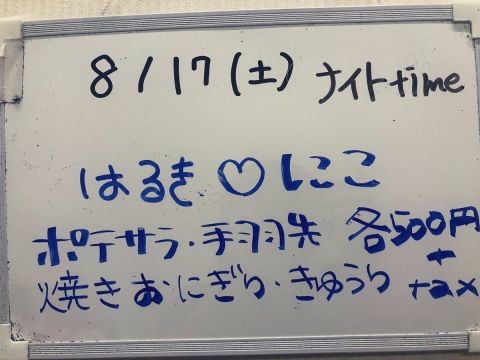 8/17(土) ナイトtime
はるき♡にこ
ポテサラ・手羽先 各500円
焼きおにぎり・きゅうり +tax